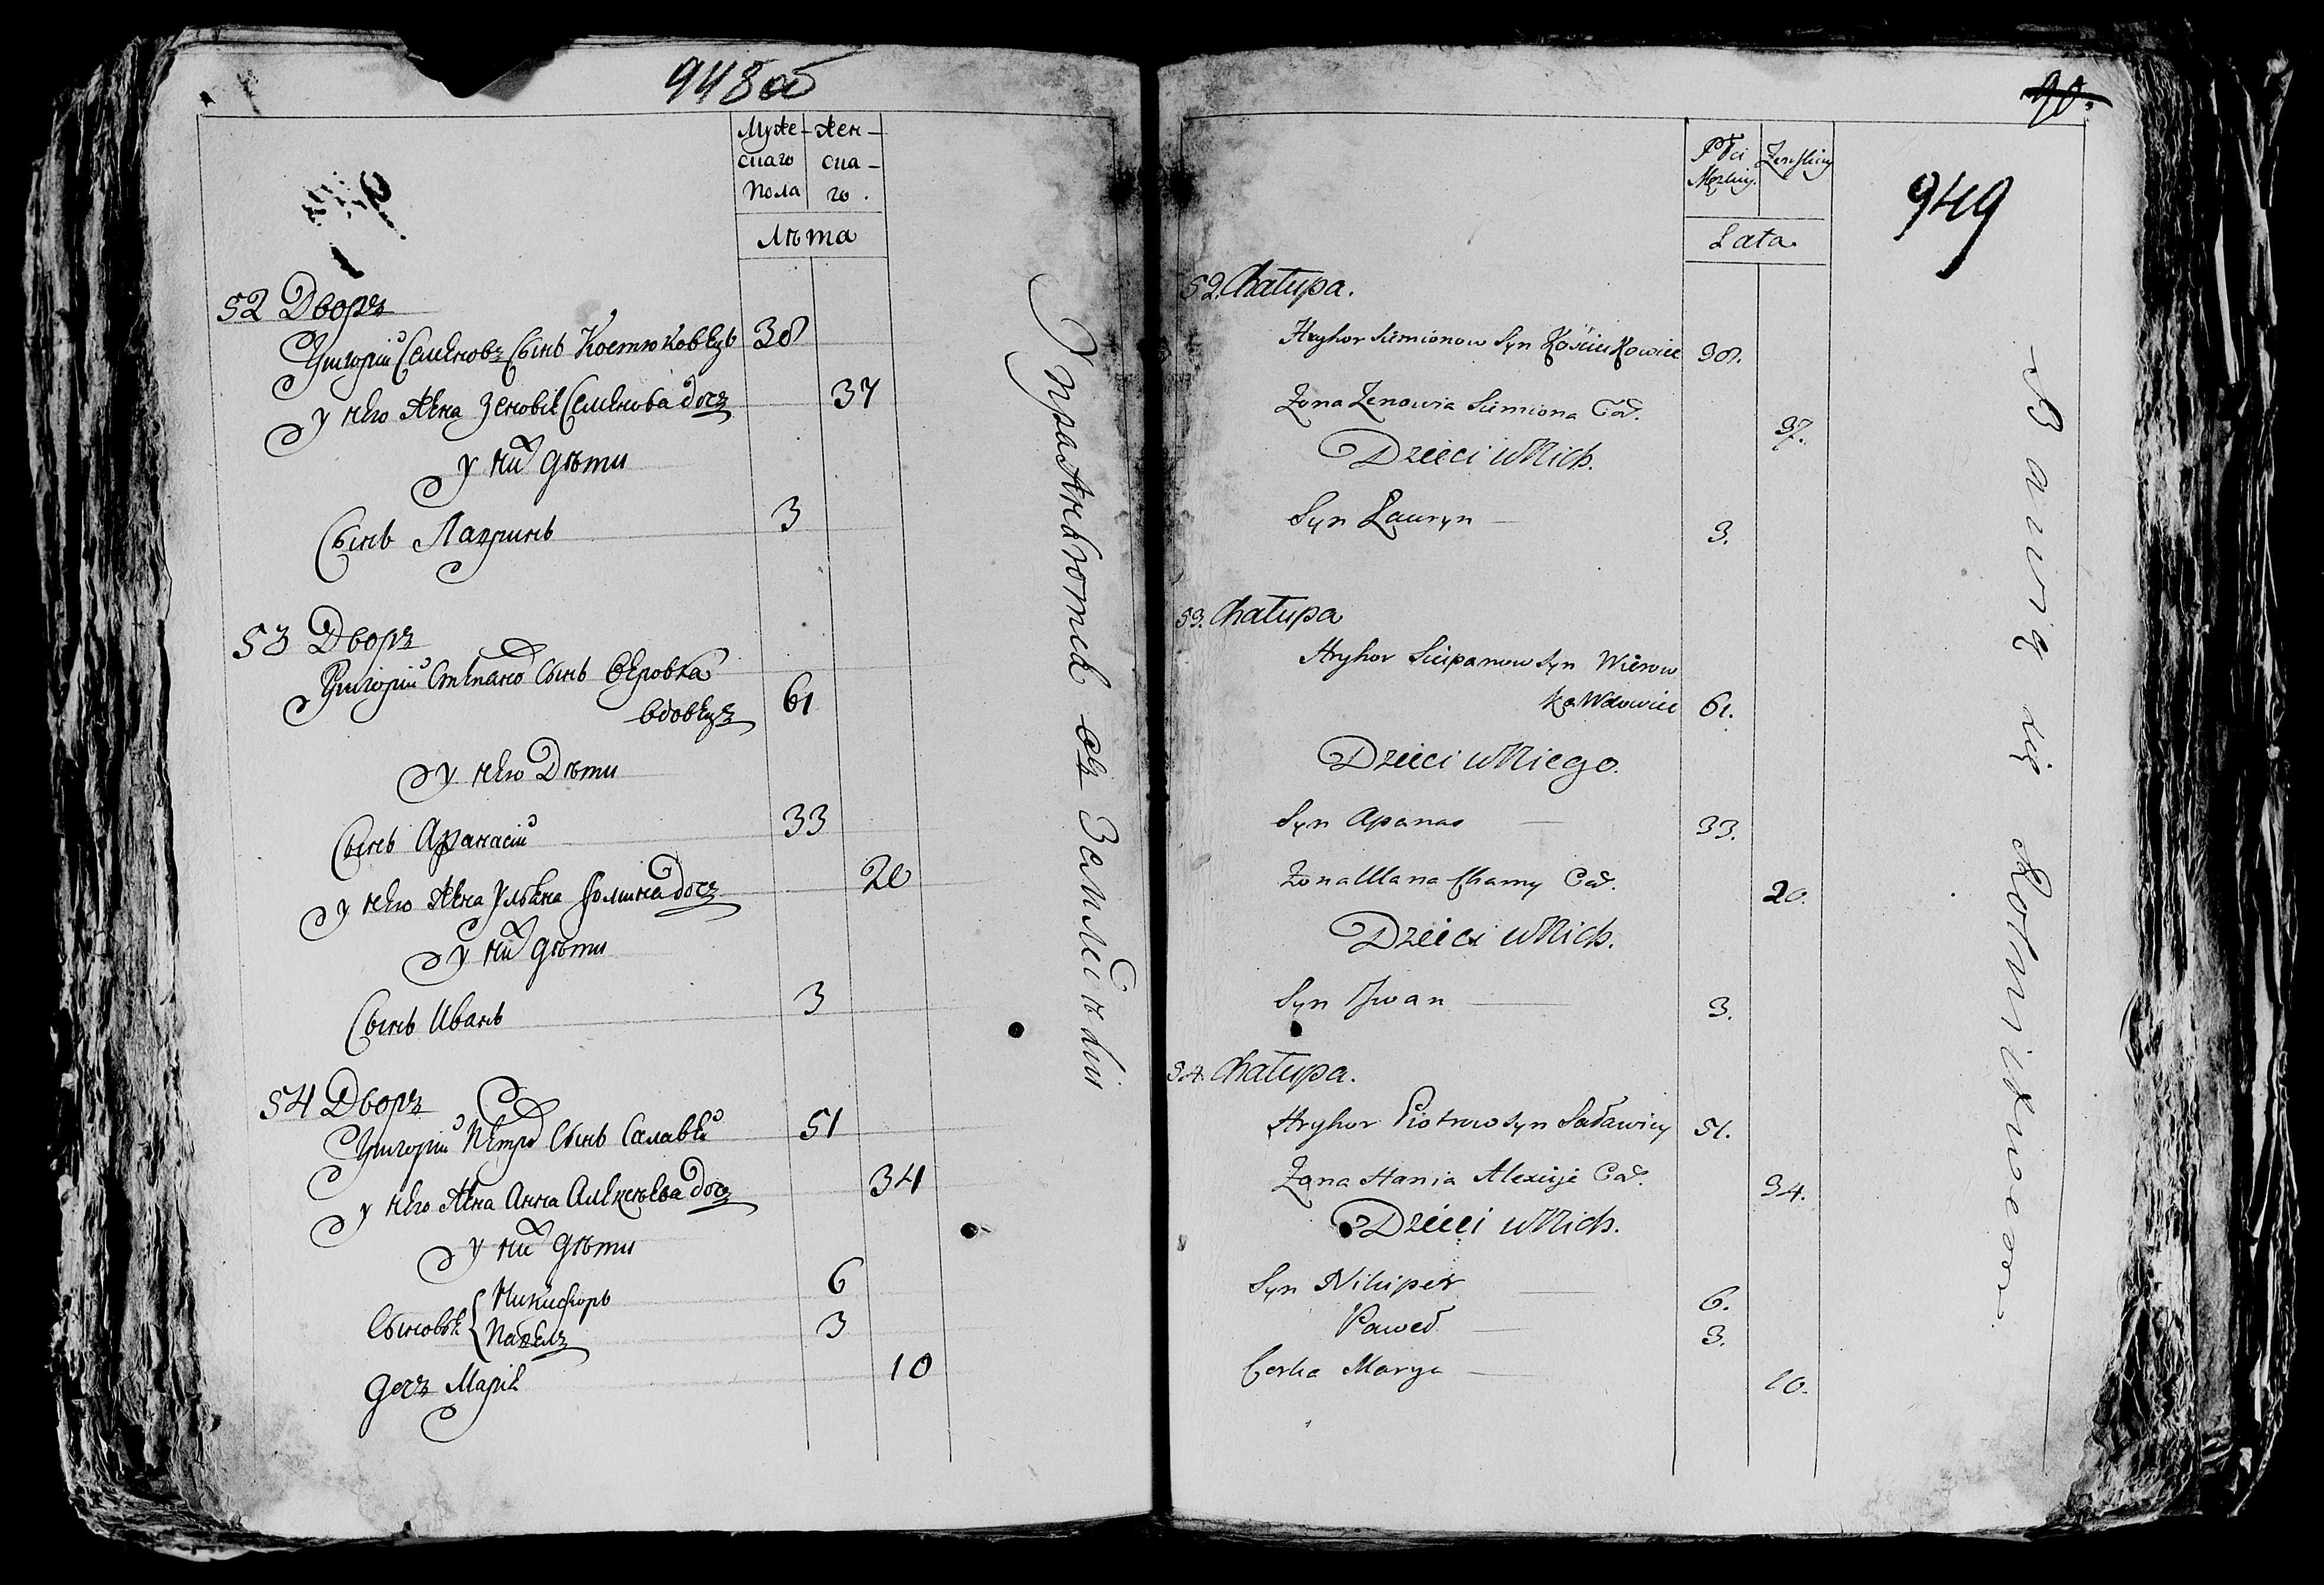 948 об
Муже- жен-
скаго ска-
пола го.
Лѣта
52 Дворъ
Григорій Семеновъ Сынъ Костюковецъ 38
у него жена Зеновія Семенова дочъ 37
у них дѣти
Сынъ Лавринъ 3
53 Дворъ
Григорій Степано Сынъ Веровка
вдовецъ 61
у него Дѣти
Сынъ Афанасій 33
у него жена Ульяна Фомина дочъ 20
у них дѣти
Сынъ Иванъ 3
54 Дворъ
Григорій Петро Сынъ Салавей 51
у него жена Анна Алексѣева дочъ 34
у них дѣти
Сыновья Никифоръ 6
Павелъ 3
дочъ Марія 10
Упражняются въ Земледѣліи
90.
949
Płci Zenskiey
Męzkiey
Lata
52. Chałupa.
Hryhor Siemionow Syn Kościukowiec 38.
Zona Zenowia Siemiona Cor. 37.
Dzieci u Nich.
Syn Lauryn 3.
53. Chałupa
Hryhor Sciepanow Syn Wierow
ka Wdowiec 61.
Dzieci u Niego.
Syn Apanas 33.
Zona Ulana Chamy Cor. 20.
Dzieci u Nich.
Syn Iwan 3.
54. Chałupa.
Hryhor Piotrow Syn Saławiey 51.
Zona Hania Alexieja Cor. 34.
Dzieci u Nich.
Syn Nikiper 6.
Paweł 3.
Corka Marya 10.
Bawią się Rolnictwem